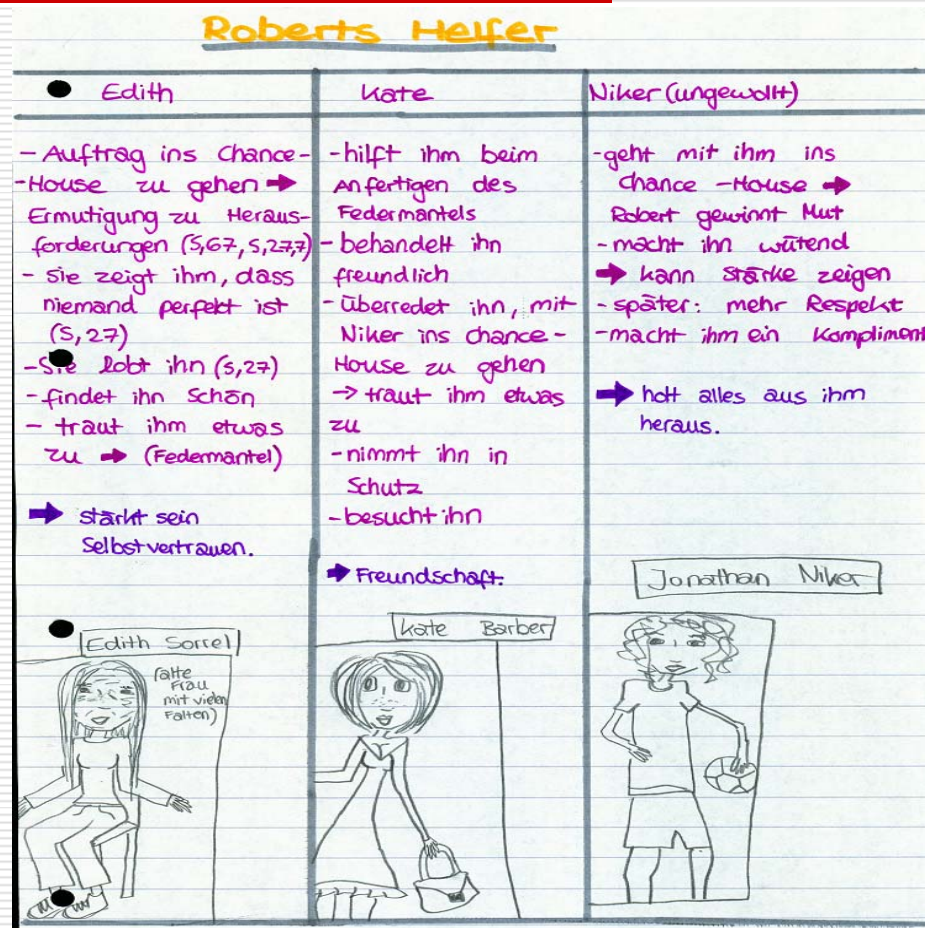 Roberts Helfer
Edith
- Auftrag ins Chance-
- House zu gehen ➡
Ermutigung zu Heraus-
forderungen (S,67, S,27,7)
- sie zeigt ihm, dass
niemand perfekt ist
(S,27)
- Sie lobt ihn (S,27)
- findet ihn Schön
- traut ihm etwas
zu ➡ (Federmantel)
➡ stärkt sein
Selbstvertrauen.
Kate
- hilft ihm beim
Anfertigen des
Federmantels
- behandelt ihn
freundlich
- überredet ihn, mit
Niker ins chance-
House zu gehen
-> traut ihm etwas
zu
- nimmt ihn in
Schutz
- besucht ihn
➡ Freundschaft.
Niker (ungewollt)
- geht mit ihm ins
Chance - House ➡
Robert gewinnt Mut
- macht ihn wütend
➡ kann stärke zeigen
- später: mehr Respekt
- macht ihm ein Kompliment
➡ holt alles aus ihm
heraus.
Edith Sorrel
(alte
Frau
mit vielen
Falten)
Kate Barber
Jonathan Niker